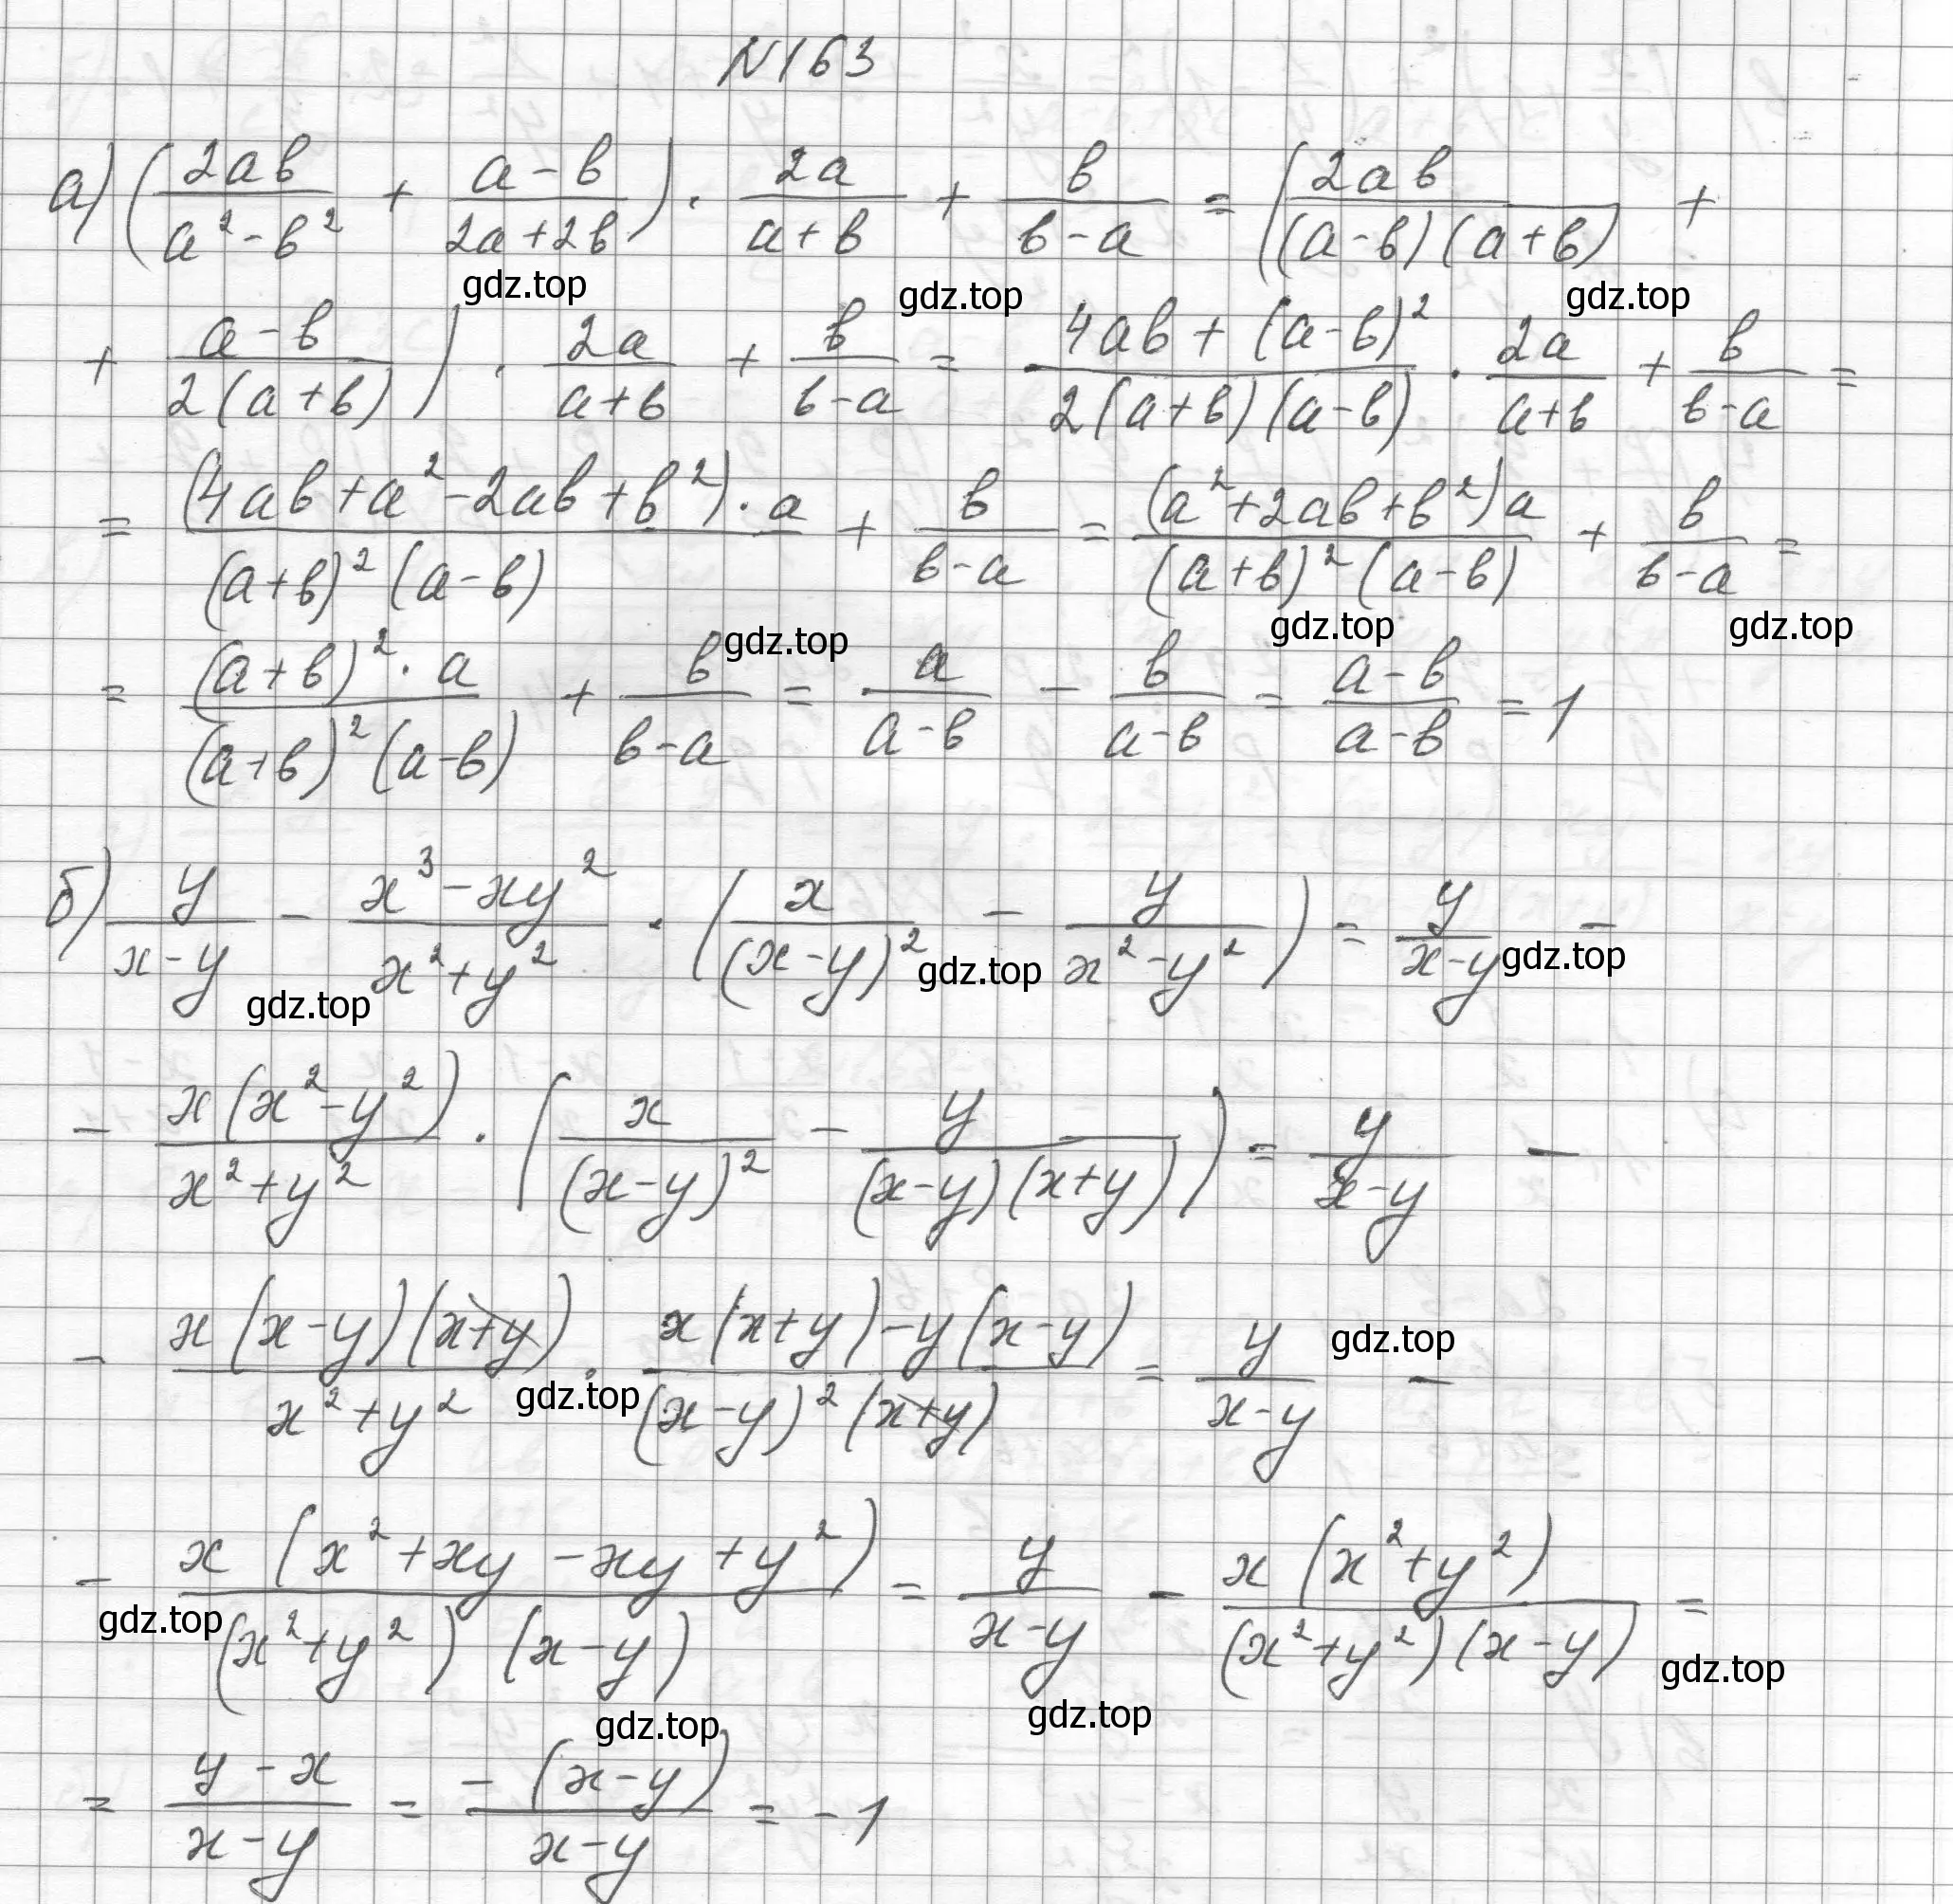 N163
а) (2ab/(a²-b²) + (a-b)/(2a+2b)) · 2a/(a+b) + b/(b-a) = (2ab/((a-b)(a+b)) +
gdz.top gdz.top gdz.top
+ (a-b)/(2(a+b))) · 2a/(a+b) + b/(b-a) = (4ab+(a-b)²)/(2(a+b)(a-b)) · 2a/(a+b) + b/(b-a) =
= ((4ab+a²-2ab+b²)·a)/((a+b)²(a-b)) + b/(b-a) = ((a²+2ab+b²)a)/((a+b)²(a-b)) + b/(b-a) =
gdz.top gdz.top gdz.top
= ((a+b)²·a)/((a+b)²(a-b)) + b/(b-a) = a/(a-b) - b/(a-b) = (a-b)/(a-b) = 1
б) y/(x-y) - (x³-xy²)/(x²+y²) · (x/(x-y)² - y/(x²-y²)) = y/(x-y) -
gdz.top gdz.top gdz.top
- x(x²-y²)/(x²+y²) · (x/(x-y)² - y/((x-y)(x+y))) = y/(x-y) -
- x(x-y)(x+y)/(x²+y²) · (x(x+y)-y(x-y))/((x-y)²(x+y)) = y/(x-y) -
gdz.top gdz.top
- x(x²+xy-xy+y²)/((x²+y²)(x-y)) = y/(x-y) - x(x²+y²)/((x²+y²)(x-y)) =
gdz.top gdz.top gdz.top gdz.top
= (y-x)/(x-y) = -(x-y)/(x-y) = -1